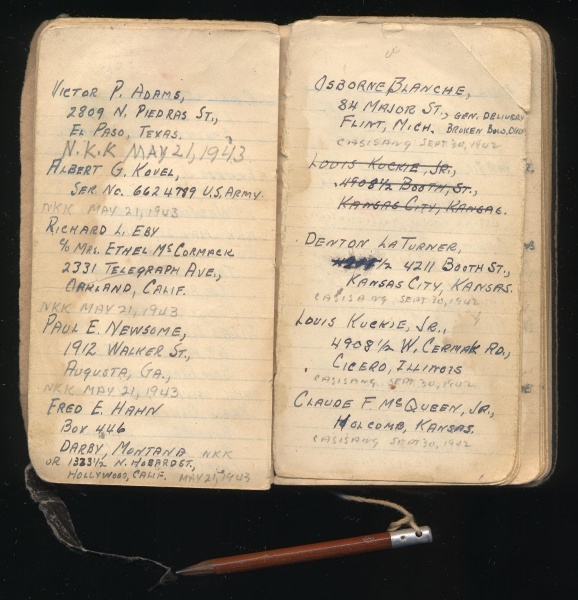 Victor P. Adams,
2809 N. Piedras St.,
El Paso, Texas.
N.K.K MAY 21, 1943
Albert G. Kovel,
Ser No. 6624789 U.S. Army.
NKK MAY 21, 1943
Richard L. Eby
c/o Mrs. Ethel McCormack
2331 Telegraph Ave.,
Oakland, Calif.
NKK MAY 21, 1943
Paul E. Newsome,
1912 Walker St.,
Augusta, Ga.,
NKK MAY 21, 1943
Fred E. Hahn
Box 446
Darby, Montana NKK
or 1323½ N. Hobard St,
Hollywood, Calif. MAY 21, 1943
Osborne Blanche,
84 Major St., Gen. Delivery
Flint, Mich. Broken Bow, Okla
CASISANG SEPT 30, 1942
Louis Kuckie, Jr.,
4908½ Booth, St.,
Kansas City, Kansas.
Denton LaTurner,
½ 4211 Booth St.,
Kansas City, Kansas.
CASISANG SEPT 30, 1942
Louis Kuckie, Jr.,
4908½ W. Cermak Rd,
Cicero, Illinois
CASISANG SEPT 30, 1942
Claude F. McQueen, Jr.,
Holcomb, Kansas.
CASISANG SEPT 30, 1942